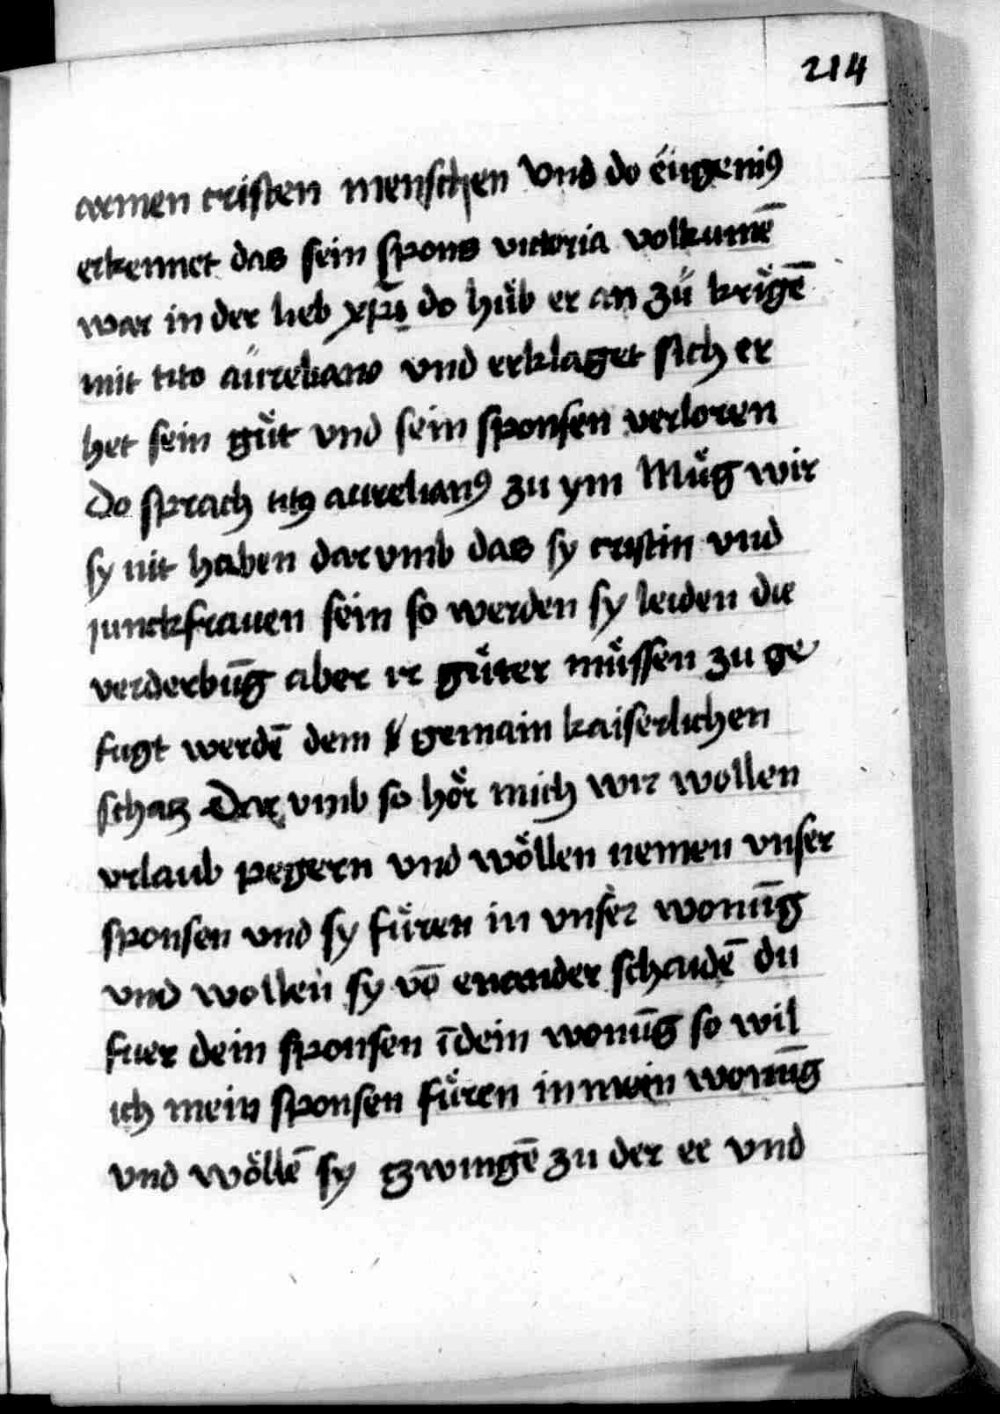 214
armen cristen menschen Vnd do eűgeniꝰ
erkennet das sein spons victoria volkumē
war in der lieb xp̄s do hűb er an zű krigē
mit tito aűreliano vnd erklaget sich er
het sein gűt vnd sein sponsen verloren
do sprach titꝰ aurelianꝰ zu ym Műg wir
sy nit haben dar vmb das sy cristin vnd
junckfrauen sein so werden sy leiden die
verderbūg aber ir gűter műssen zu ge
fugt werdē dem gemain kaiserlichen
schatz Dar vmb so hőr mich wir wollen
vrlaub pegern vnd wőllen nemen vnser
sponsen vnd sy fűren in vnser wonūg
vnd wollen sy vō enander schaidē du
fuer dein sponsen ī dein wonūg so wil
ich mein sponsen fűren in mein wonūg
vnd wőllē sy gzwingē zu der er vnd